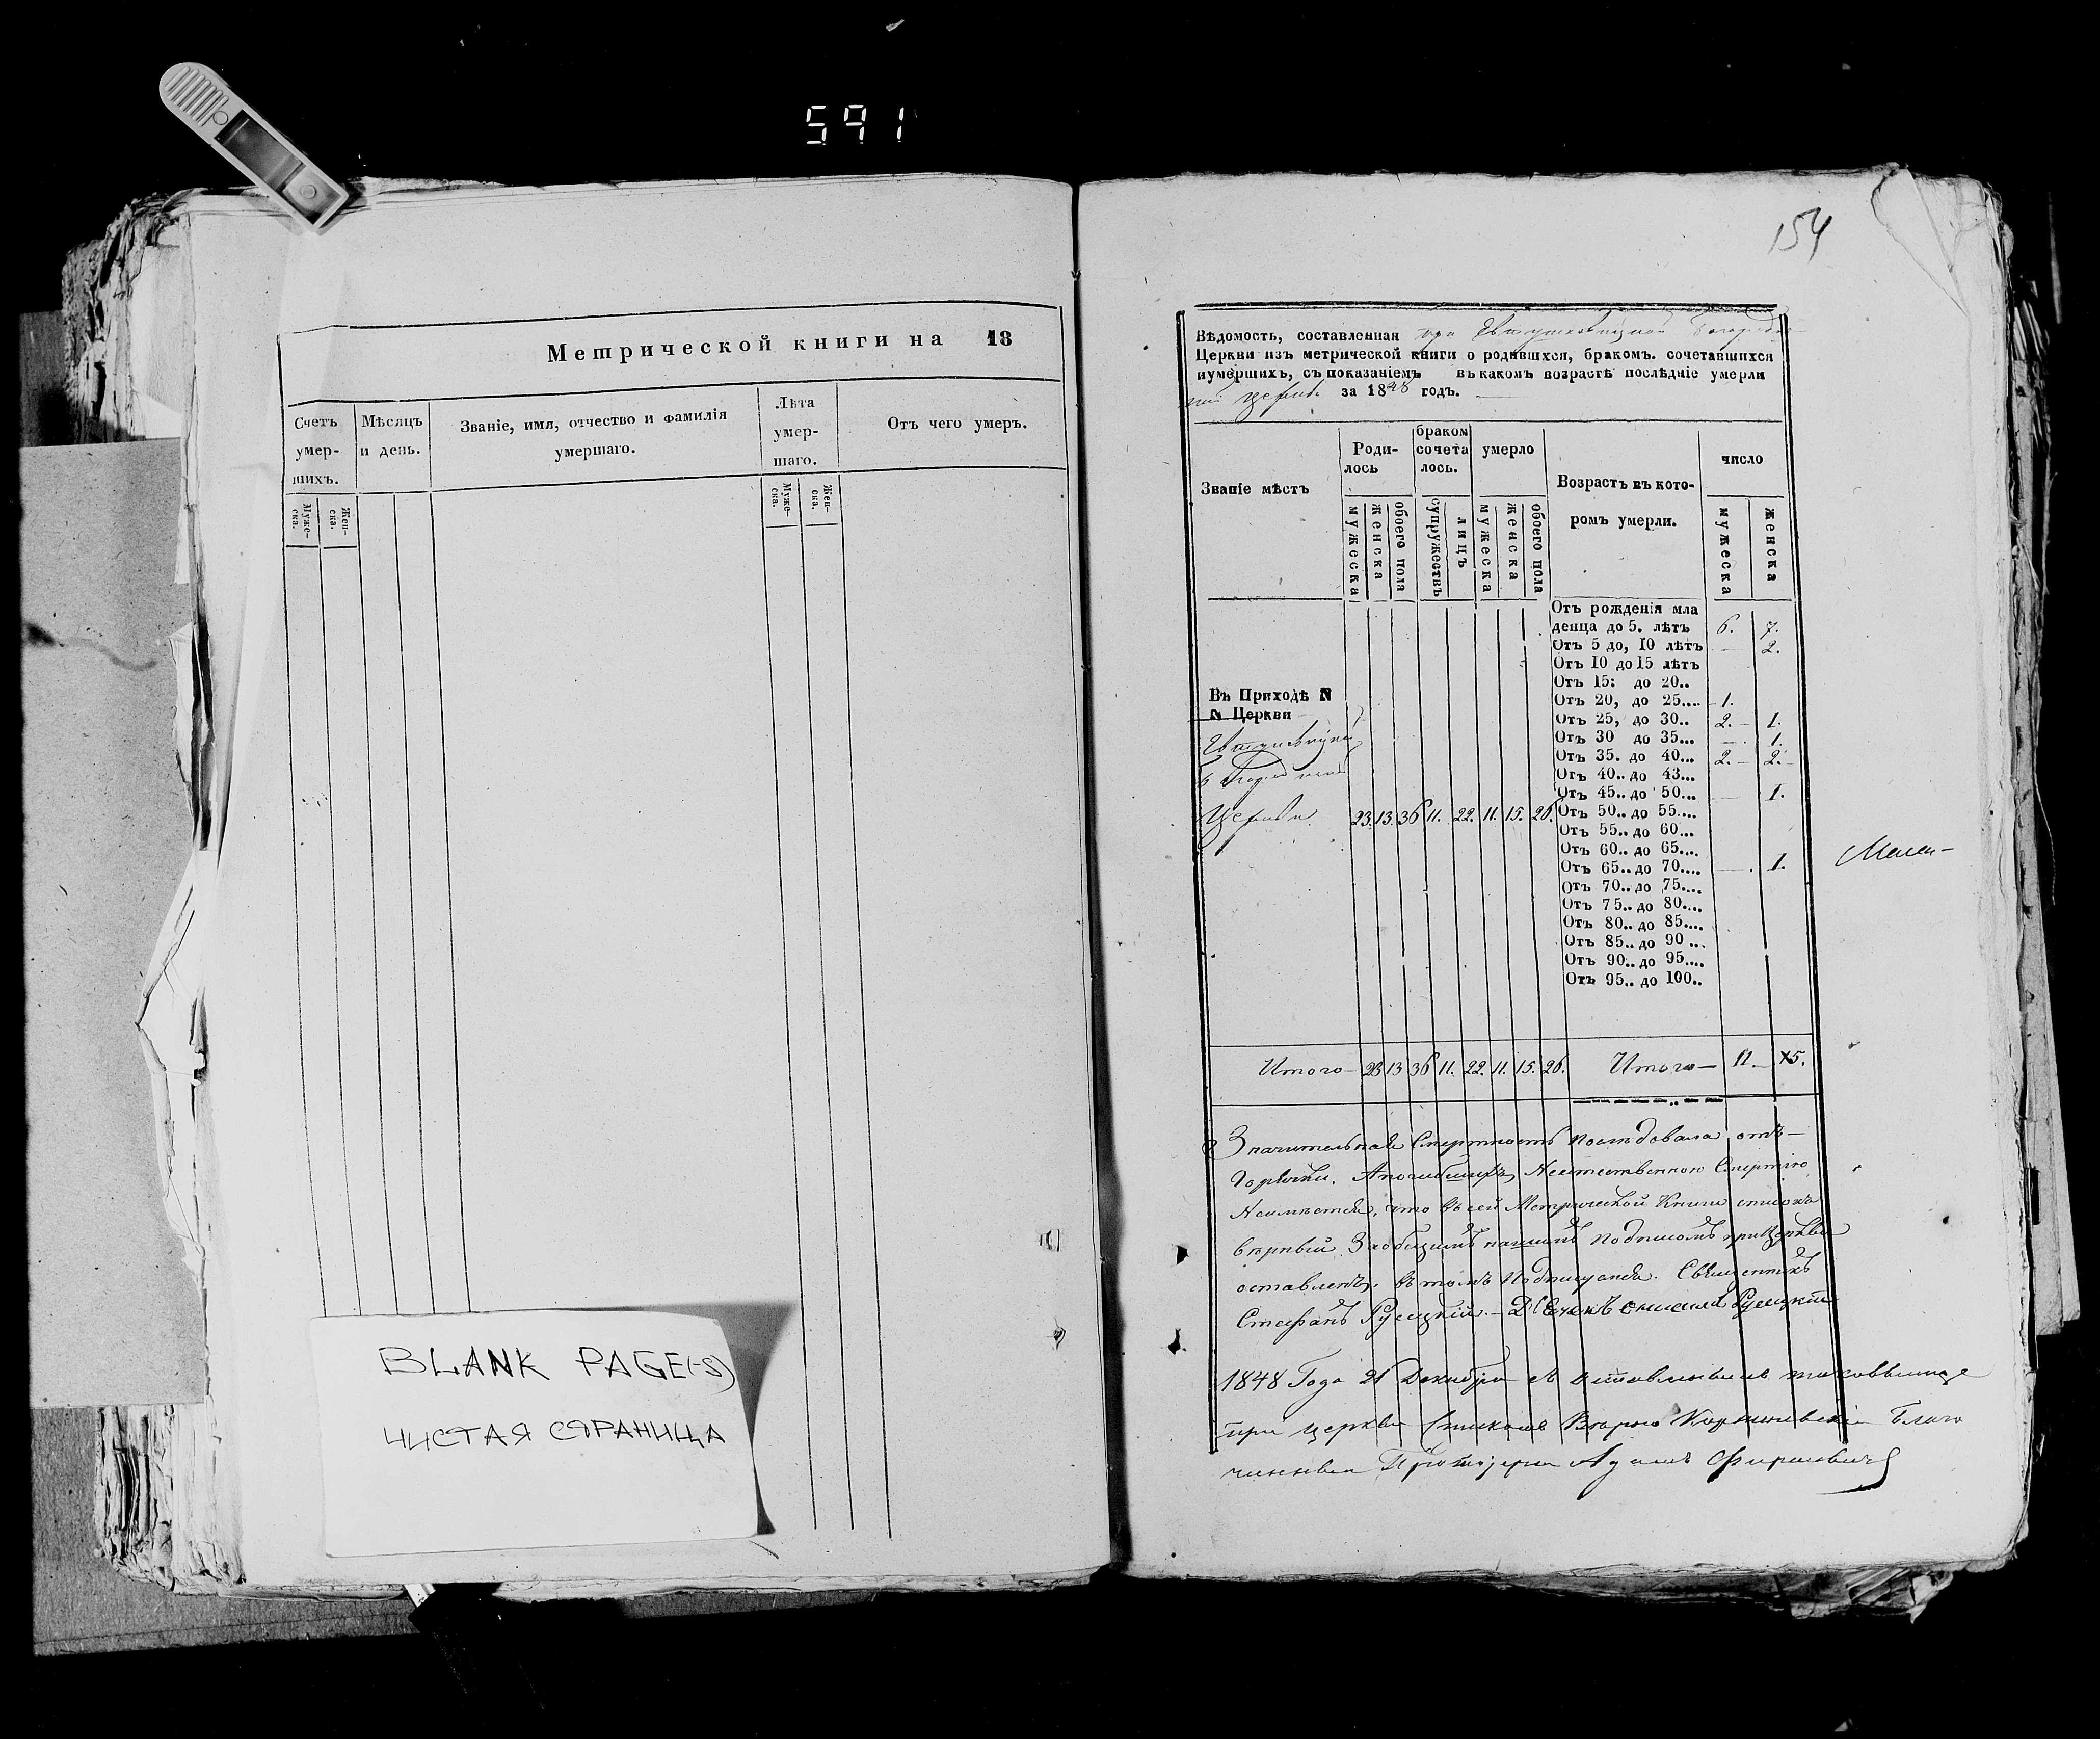 591
Метрической книги на 18
Счетъ умер-шихъ.
Мѣсяцъ и день.
Званіе, имя, отчество и фамилія умершаго.
Лѣта умер-шаго.
Отъ чего умеръ.
Муже-ска.
Жен-ска.
Муже-ска.
Жен-ска.
BLANK PAGE(-S)
ЧИСТАЯ СТРАНИЦА
154
Вѣдомость, составленная при
Церкви изъ метрической книги о родившхся, бракомъ. сочетавшихся
иумершихъ, съ показаніемъ въ какомъ возрастѣ послѣдніе умерли
церкви за 1848 годъ.
Званіе мѣстъ
Роди-лось
браком сочета лось.
умерло
Возрасть въ кото-ромъ умерли.
число
мужеска
женска
обоего пола
супружествъ
лицъ
мужеска
женска
обоего пола
мужеска
женска
Отъ рожденія мла
денца до 5. лѣтъ 6. 7.
Отъ 5 до, 10 лѣтъ — 2.
Отъ 10 до 15 лѣтъ
Отъ 15: до 20..
Въ Приходѣ N
Отъ 20, до 25.... 1.
N Церкви
Отъ 25, до 30.. 2. 1.
Отъ 30 до 35... — 1.
Отъ 35. до 40... 2. 2.
Отъ 40.. до 43...
Отъ 45.. до 50... — 1.
Церкви 23. 13. 36 11. 22. 11. 15. 26.
Отъ 50.. до 55....
Отъ 55.. до 60...
Отъ 60.. до 65....
Отъ 65.. до 70.... — 1.
Отъ 70.. до 75....
Отъ 75.. до 80....
Отъ 80.. до 85....
Отъ 85.. до 90 ...
Отъ 90.. до 95....
Отъ 95.. до 100..
Итого — 23 13 36 11. 22. 11. 15. 26. Итого — 11. 15.
Значительная Смертность послѣдовала отъ —
горячки. Апогибшихъ Неестественною Смертію
Неимѣется, что въ сей Метрической Книги списокъ
вѣрный Заобщимъ нашимъ подписомъ прицеркви
оставленъ. въ томъ Подписуемся. Священникъ
Стефанъ Русецкій. — Дьячекъ Русецкій
1848 Года 21 Декабря
при церкви Благо
чинный Протоіерей Адамъ